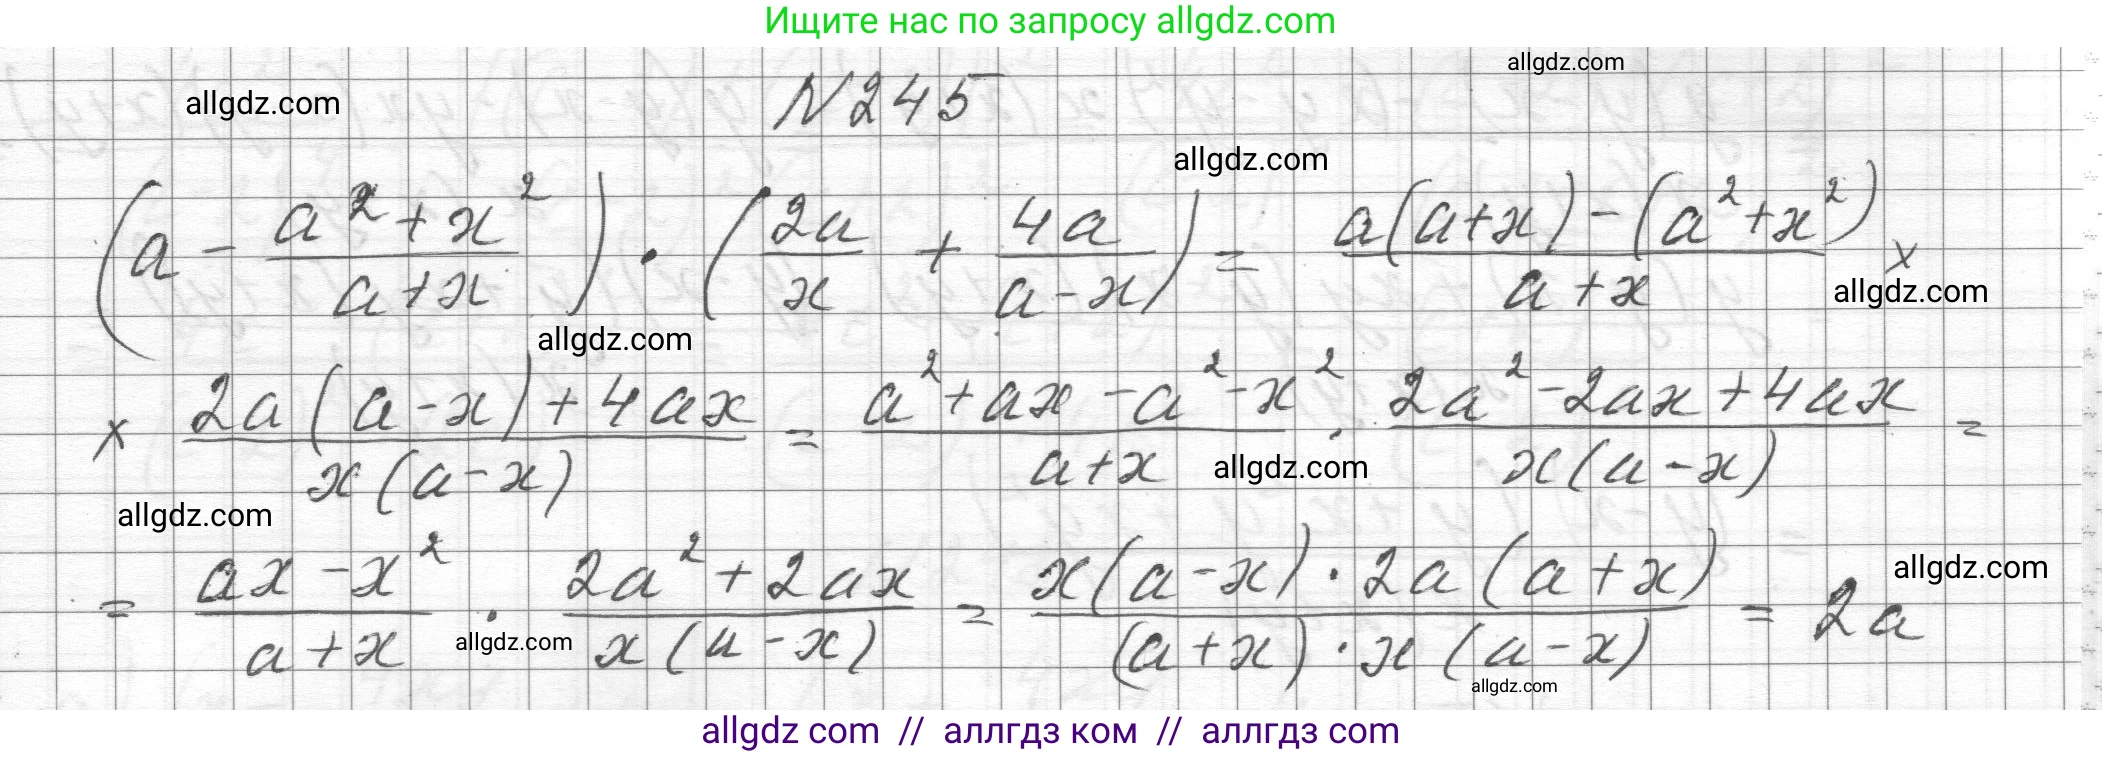 Ищите нас по запросу allgdz.com
allgdz.com
allgdz.com
N245
allgdz.com
(a - \frac{a^2+x^2}{a+x}) · (\frac{2a}{x} + \frac{4a}{a-x}) = \frac{a(a+x)-(a^2+x^2)}{a+x} ×
allgdz.com
allgdz.com
× \frac{2a(a-x)+4ax}{x(a-x)} = \frac{a^2+ax-a^2-x^2}{a+x} · \frac{2a^2-2ax+4ax}{x(a-x)} =
allgdz.com
allgdz.com
= \frac{ax-x^2}{a+x} · \frac{2a^2+2ax}{x(a-x)} = \frac{x(a-x)·2a(a+x)}{(a+x)·x(a-x)} = 2a
allgdz.com
allgdz.com
allgdz.com
allgdz com // аллгдз ком // аллгдз com